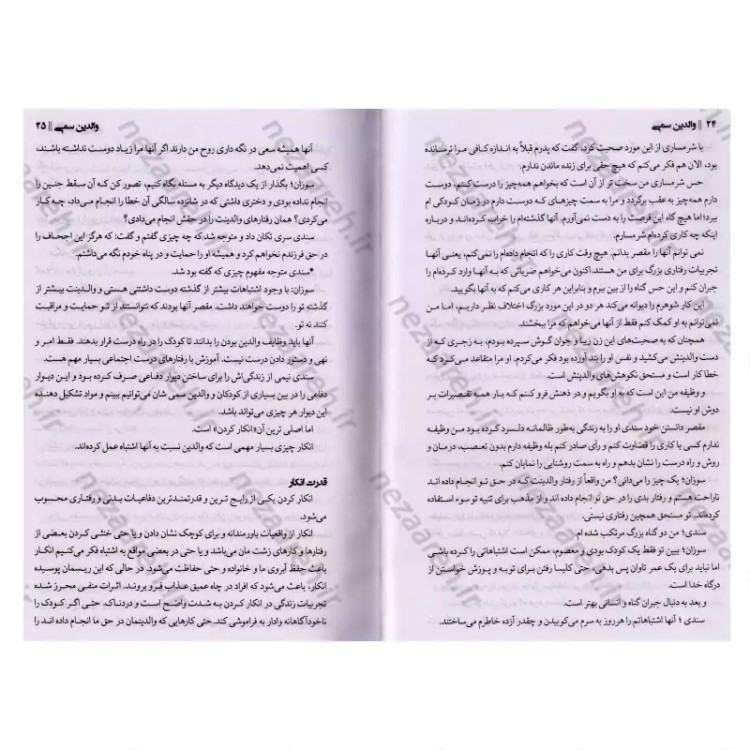 ۲۴ || والدین سمی
با شرمساری از این مورد صحبت کرد، گفت که پدرم قبلاً به اندازه کافی مرا ترسانده
بود، الان هم فکر می‌کنم که هیچ حقی برای زنده ماندن ندارم.
حس شرمساری من سخت تر از آن است که بخواهم همه‌چیز را درست کنم، دوست
دارم همه‌چیز به عقب برگردد و مرا به سمت چیزهای که دوست دارم در زمان کودکی ام
ببرد؛ اما هیچ گاه این فرصت را به دست نمی‌آورم. آنها گذشته‌ام را خراب کرده‌اند و درباره
اینکه چه کاری کرده‌ام شرمسارم.
نمی توانم آنها را مقصر بدانم. هیچ وقت کاری را که انجام داده‌ام را نمی‌کنم، یعنی آنها
تجربیات رفتاری بزرگ برای من هستند. اکنون می‌خواهم ضرباتی که به آنها وارد کرده‌ام را
جبران کنم و این حس گناه را از بین ببرم و بنابراین هر کاری می‌کنم که به آنها بگویید.
این کار شوهرم را دیوانه می‌کند هر دو در این مورد بزرگ اختلاف نظر داریم، اما من
نمی‌توانم به او کمک کنم فقط از آنها می‌خواهم که مرا ببخشند.
همچنان که به صحبت‌های این زن زیبا و جوان گوش سپرده بودم، به زجری که از
دست والدینش می‌کشید و نفس او را بند آورده بود فکر می‌کردم، او مرا متقاعد می‌کرد که
خطاکار است و مستحق نکوهش‌های والدینش است.
و وظیفه من این است که به او بگویم و در ذهنش فرو کنم که بار همه تقصیرات بر
دوش او نیست.
مقصر دانستن خود سندی او را به زندگی به‌طور ظالمانه دلسرد کرده بود من وظیفه
ندارم کسی یا کاری را قضاوت کنم و رأی صادر کنم بله وظیفه دارم بدون تعصب، درمان و
روش و راه درست را نشان بدهم و راه به سمت روشنایی را نمایان کنم.
سوزان؛ یک چیز را می‌دانی؟ من واقعاً از رفتار والدینت که در حق تو انجام داده اند
ناراحت هستم و رفتار بدی را در حق تو انجام داده اند و از مذهب برای تنبیه تو سوء استفاده
کرده‌اند. تو مستحق همچین رفتاری نیستی.
سندی؛ من دو گناه بزرگ مرتکب شده ام.
سوزان؛ ببین تو فقط یک کودک بودی و معصوم، ممکن است اشتباهاتی را کرده باشی
اما نباید برای یک عمر تاوان پس بدهی، حتی کلیسا رفتن برای توبه و پوزش خواستن از
درگاه خدا است.
و بعد به دنبال جبران گناه و انسانی بهتر است.
سندی؛ آنها اشتباهاتم را هرروز به سرم می‌کوبیدن و چقدر آزده خاطرم می‌ساختند.
والدین سمی || ۲۵
آنها همیشه سعی در نگه داری روح من دارند اگر آنها مرا زیاد دوست نداشته باشند،
کسی اهمیت نمی‌دهد.
سوزان؛ بگذار از یک دیدگاه دیگر به مسئله نگاه کنیم، تصور کن که آن سقط جنین را
انجام نداده بودی و دختری داشتی که در شانزده سالگی آن خطا را انجام می‌داد، چه کار
می‌کردی؟ همان رفتارهای والدینت را در حقش انجام می‌دادی؟
سندی سری تکان داد و متوجه شد که چه چیزی گفتم و گفت؛ که هرگز این اجحاف را
در حق فرزندم نخواهم کرد و همیشه او را حمایت و در پناه خودم نگه می‌داشتم.
*سندی متوجه مفهوم چیزی که گفته بود شد.
سوزان: با وجود اشتباهات بیشتر از گذشته دوست داشتنی هستی و والدینت بیشتر از
گذشته تو را دوست خواهند داشت. مقصر آنها بودند که نتوانستند، از تو حمایت و مراقبت
کنند نه تو.
آنها باید وظایف والدین بودن را بدانند تا کودک را در راه درست قرار بدهند. فقط امر و
نهی و دستور دادن درست نیست. آموزش با رفتارهای درست اجتماعی بسیار مهم هست.
سندی نیمی از زندگی‌اش را برای ساختن دیوار دفاعی صرف کرده بود و این دیوار
دفاعی را در بین بسیاری از کودکان و والدین سمی شان می‌توانیم ببینم و مواد تشکیل دهنده
این دیوار هر چیزی می‌تواند باشد.
اما اصلی ترین آن«انکار کردن» است.
انکار چیزی بسیار مهمی است که والدین نسبت به آنها اشتباه عمل کرده‌اند.
قدرت انکار
انکار کردن یکی از رایج ترین و قدرتمندترین دفاعیات بدنی و رفتاری محسوب
می‌شود.
انکار از واقعیات باورمندانه و برای کوچک نشان دادن و یا حتی خنثی کردن بعضی از
رفتارها و کارهای زشت مان می‌باشد و یا حتی در بعضی مواقع به اشتباه فکر می‌کنیم انکار
باعث حفظ آبروی ما و خانواده و حتی حفاظت می‌شود. در حالی که این ریسمان پوسیده
انکار، باعث می‌شود که افراد در چاه عمیق عذاب فرو بروند. اثرات منفی محرز شده
تجربیات زندگی در انکار کردن به شدت واضح است و دردناک. حتی اگر کودک را
ناخودآگاهانه وادار به فراموشی کند. حتی کارهایی که والدینمان در حق ما انجام داده اند را
nezaareh.ir